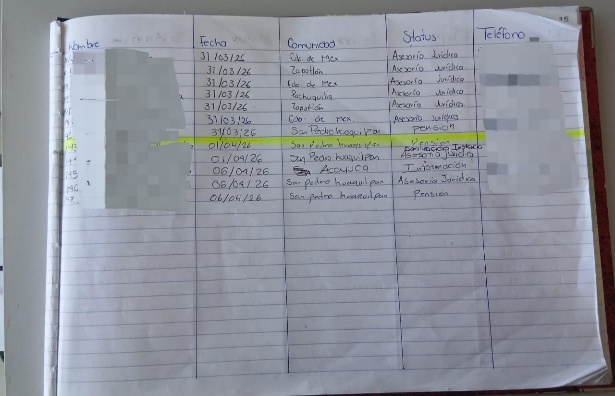 Nombre Fecha Comunidad Status Teléfono 15
31/03/26 Edo. de Mex Asesoría Jurídica
31/03/26 Zapotlán Asesoría Jurídica
31/03/26 Edo de Mex Asesoría Jurídica
31/03/26 Pachuquilla Asesoría Jurídica
31/03/26 Zapotlán Asesoría Jurídica
31/03/26 Edo. de mex. Asesoría Jurídica
31/03/26 San Pedro huaquilpan Pensión
01/04/26 San Pedro huaquilpan Pensión
01/04/26 San Pedro huaquilpan Asesoría Jurídica
06/04/26 Acayuca Información
06/04/26 San pedro huaquilpan Asesoría Jurídica
06/04/26 San pedro huaquilpan Pensión